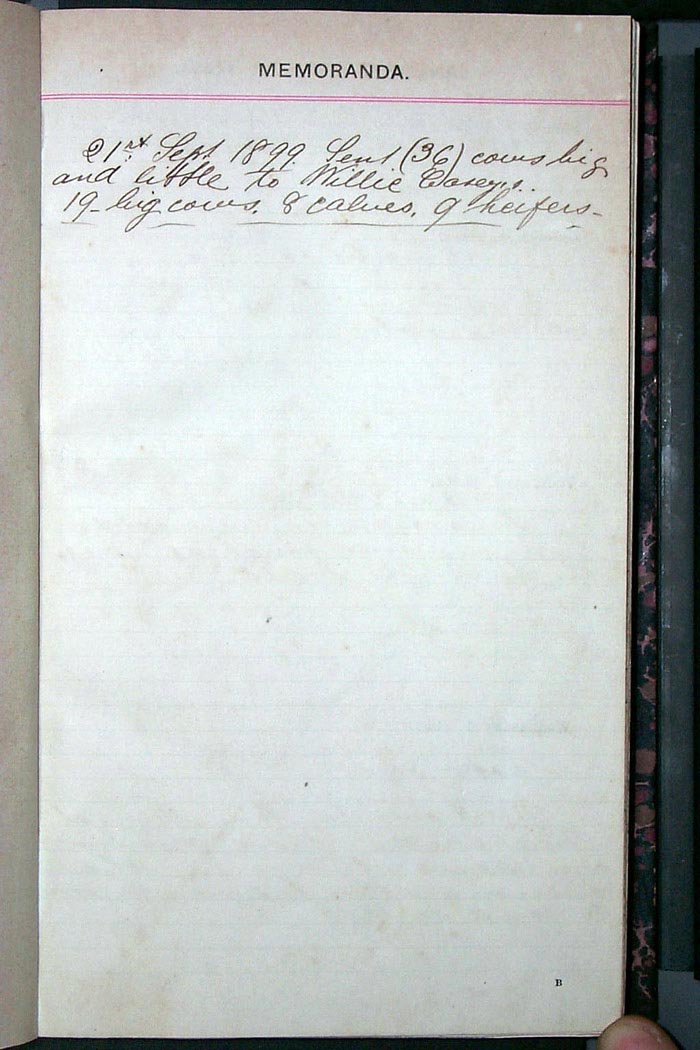 MEMORANDA.
21st Sept 1899. Sent (36) cows big
and little to Willie Caseys.
19 - big cows. 8 calves. 9 heifers -
B